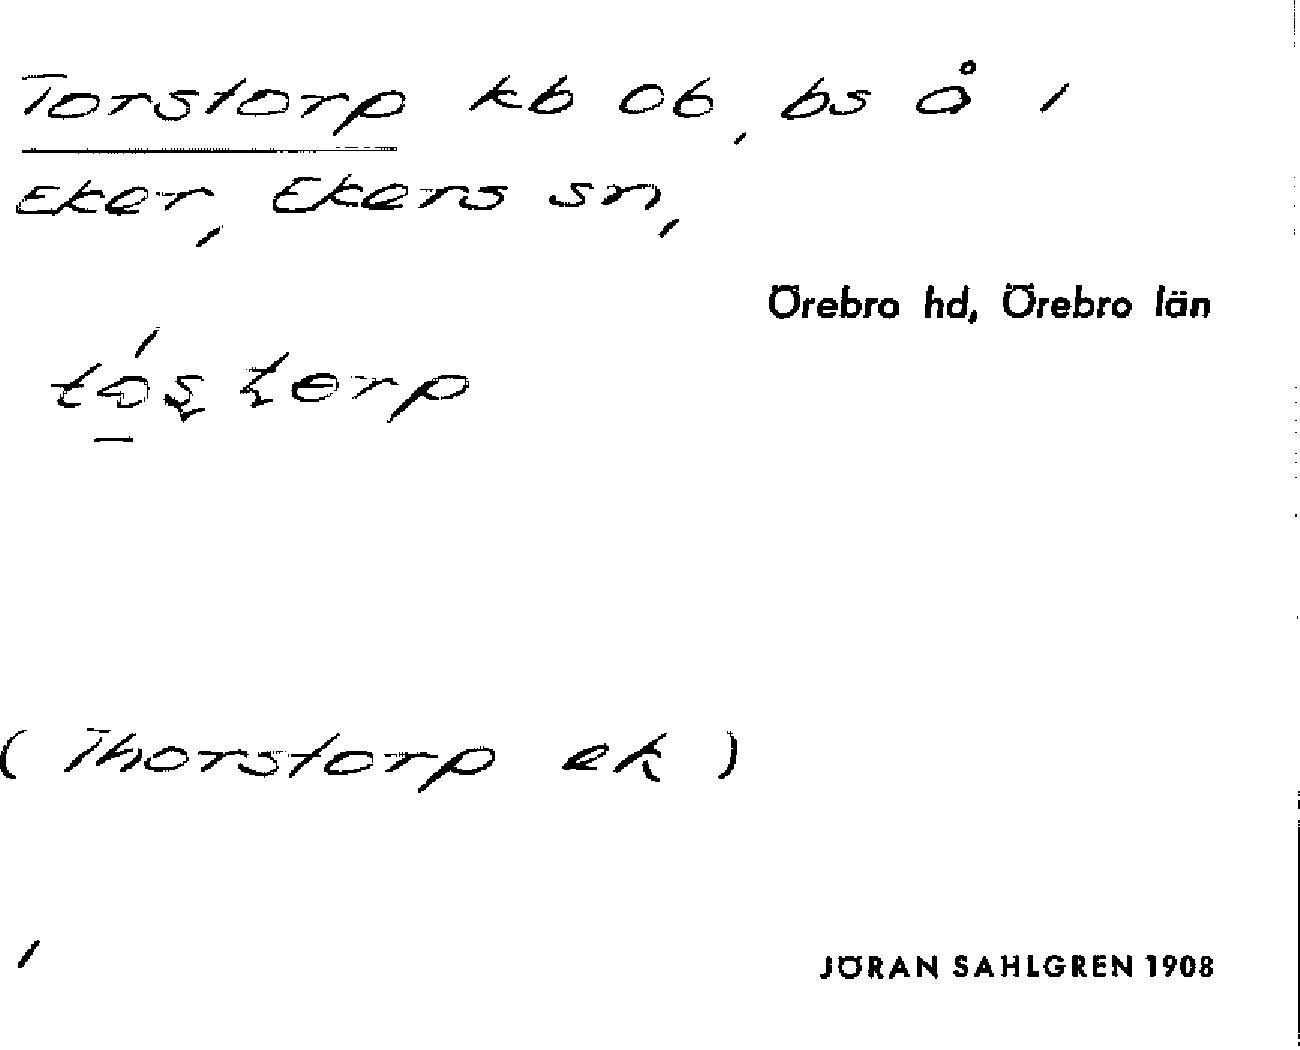 Torstorp kb ob, bs å i
Eker, Ekers sn,
Örebro hd, Örebro län
(Thorstorp ek)
JÖRAN SAHLGREN 1908